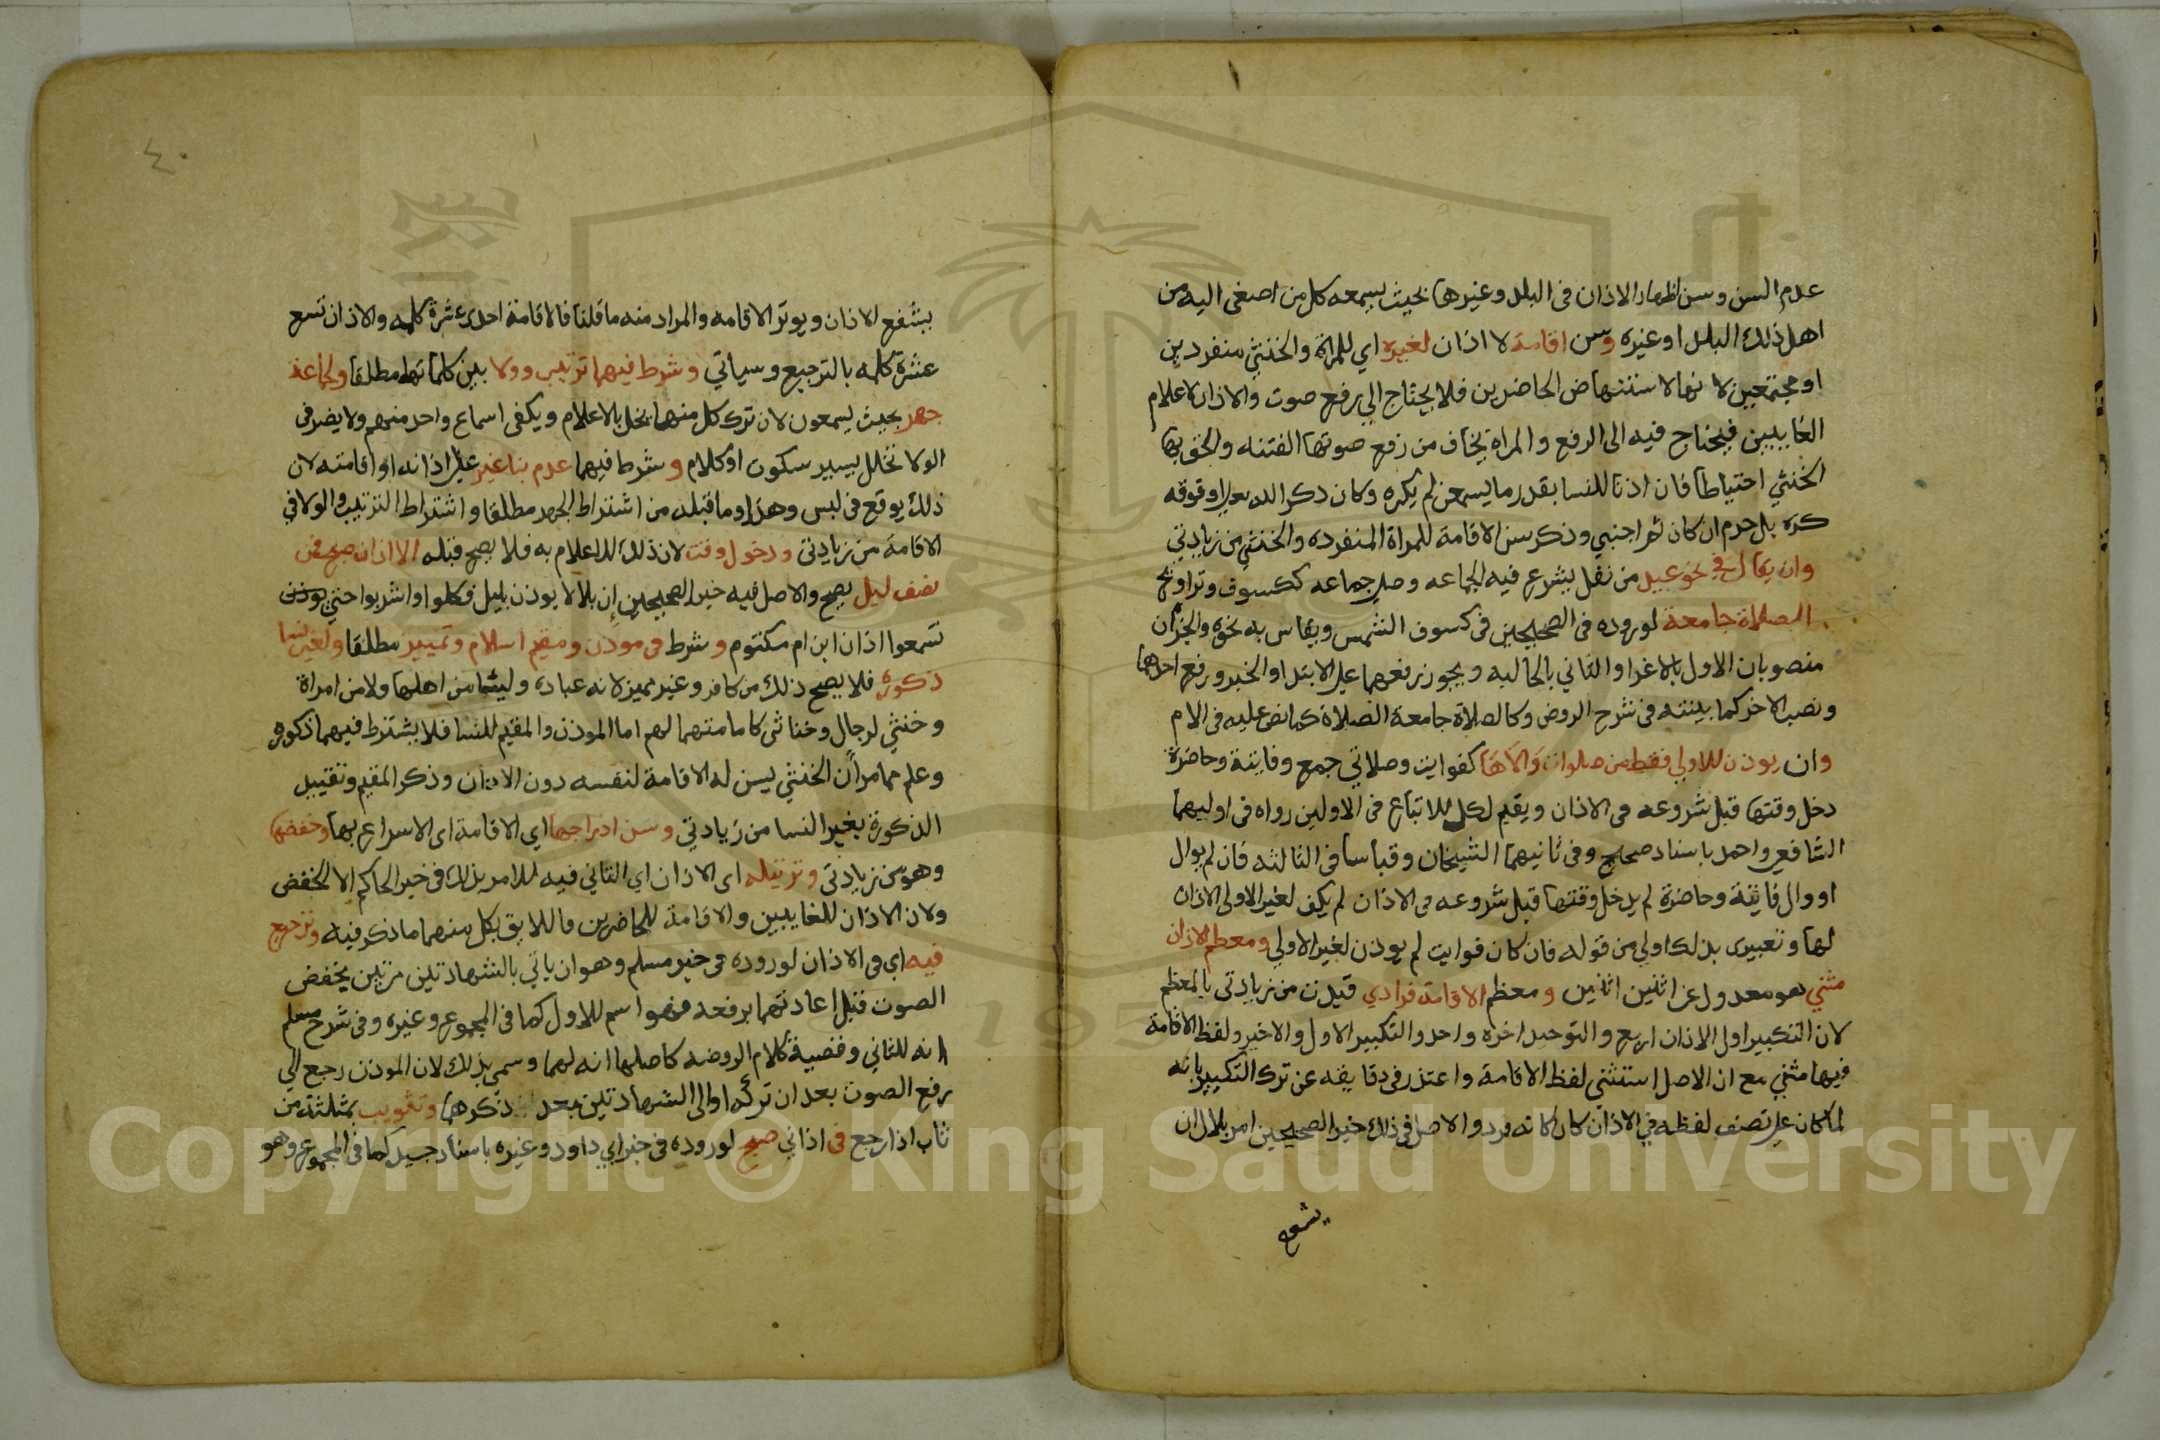 عدم السن وسن اظهار الاذان فى البلد وغيرها بحيث يسمعه كل من اصغى اليه من
اهل ذلك البلد او غيره وسن اقامة لا اذان لغيره اي للمراة والخنثي منفردين
او مجتمعين لانها لاستنهاض الحاضرين فلا يحتاج الي رفع صوت والاذان لاعلام
الغايبين فيحتاج فيه الى الرفع والمراة يخاف من رفع صوتها الفتنه والحق بها
الخنثي احتياطا فان اذنا للنسا بقدر ما يسمعن لم يكره وكان ذكر الله تعالى او فوقه
كره بل حرم ان كان ثم اجنبي وذكر سن الاقامة للمراة المنفرده والخنثي من زيادتي
وان يقال في نحو عيد من نفل يشرع فيه الجماعه وصلي جماعه ككسوف وتراويح
الصلاة جامعة لوروده فى الصحيحين فى كسوف الشمس ويقاس به نحوه والجزان
منصوبان الاول بالاغرا والثاني بالحاليه ويجوز رفعهما علي الابتدا والخبر ورفع احدهما
ونصب الاخر كما بينته فى شرح الروض وكالصلاة جامعة الصلاة كما نص عليه فى الام
وان يوذن للاولي فقط من صلوات والاها كفوايت وصلاتي جمع وفايتة وحاضرة
دخل وقتها قبل شروعه فى الاذان ويقيم لكل للاتباع فى الاولين رواه فى اوليهما
الشافعي واحمد باسناد صحيح وفى ثانيهما الشيخان وقياسا فى الثالثه فان لم يوال
او والى فايتة وحاضرة لم يدخل وقتها قبل شروعه فى الاذان لم يكف لغير الاولي الاذان
لها وتعبيرى بذلك اولي من قوله فان كان فوايت لم يوذن لغير الاولي ومعظم الاذان
مثني هو معدول عن اثنين اثنين ومعظم الاقامة فرادي قيدت من زيادتى بالمعظم
لان التكبير اول الاذان اربع والتوحيد اخره واحد والتكبير الاول والاخير ولفظ الاقامة
فيها مثني مع ان الاصل استثني لفظ الاقامة واعتذر فى دقايقه عن ترك التكبير بانه
لما كان علي نصف لفظه في الاذان كان كانه فرد والاصل فى ذلك خبر الصحيحين امر بلال ان
يشفع
٤٠
يشفع الاذان ويوتر الاقامه والمراد منه ما قلنا فالاقامة احدى عشرة كلمه والاذان تسع
عشرة كلمه بالترجيع وسياتي وشرط فيهما ترتيب وولا بين كلماتهما مطلقا ولجماعة
جهر بحيث يسمعون لان ترك كل منها يخل بالاعلام ويكفى اسماع واحد منهم ولا يضر فى
الولا تخلل يسير سكوت او كلام وشرط فيهما عدم بنا غير علي اذانه او اقامته لان
ذلك يوقع فى لبس وهذا وما قبله من اشتراط الجهر مطلقا واشتراط الترتيب والولا في
الاقامة من زيادتى ودخول وقت لان ذلك للاعلام به فلا يصح قبله الا اذان صبح فمن
نصف ليل يصح والاصل فيه خبر الصحيحين إن بلالا يوذن بليل فكلوا واشربوا حتي
تسمعوا اذان ابن ام مكتوم وشرط فى موذن ومقيم اسلام وتمييز مطلقا ولغير نسا
ذكوره فلا يصح ذلك من كافر وغير مميز لانه عباده وليسا من اهلها ولا من امراة
وخنثي لرجال وخناثى كامامتهما لهم اما الموذن والمقيم للنسا فلا يشترط فيهما ذكوره
وعلم مما مر أن الخنثي يسن له الاقامة لنفسه دون الاذان وذكر المقيم وتقييد
الذكورة بغير النسا من زيادتي وسن ادراجها اي الاقامة اى الاسراع بها وخفضها
وهو من زيادتى وترتيله اى الاذان اي التاني فيه للامر بذلك فى خبر الحاكم الا الخفض
ولان الاذان للغايبين والاقامة للحاضرين فاللايق بكل منهما ما ذكر فيه وترجيع
فيه اي فى الاذان لوروده فى خبر مسلم وهو ان ياتي بالشهادتين مرتين بخفض
الصوت قبل إعادتهما برفعه فهو اسم للاول كما فى المجموع وغيره وفى شرح مسلم
انه للثاني وقضية كلام الروضه كاصلها انه لهما وسمي بذلك لان الموذن رجع الي
رفع الصوت بعد ان تركه او الى الشهادتين بعد ذكرهما وتثويب بمثلثة من
ثاب اذا رجع فى اذانى صبح لوروده فى خبر ابي داود وغيره باسناد جيد كما فى المجموع وهو
Copyright © King Saud University